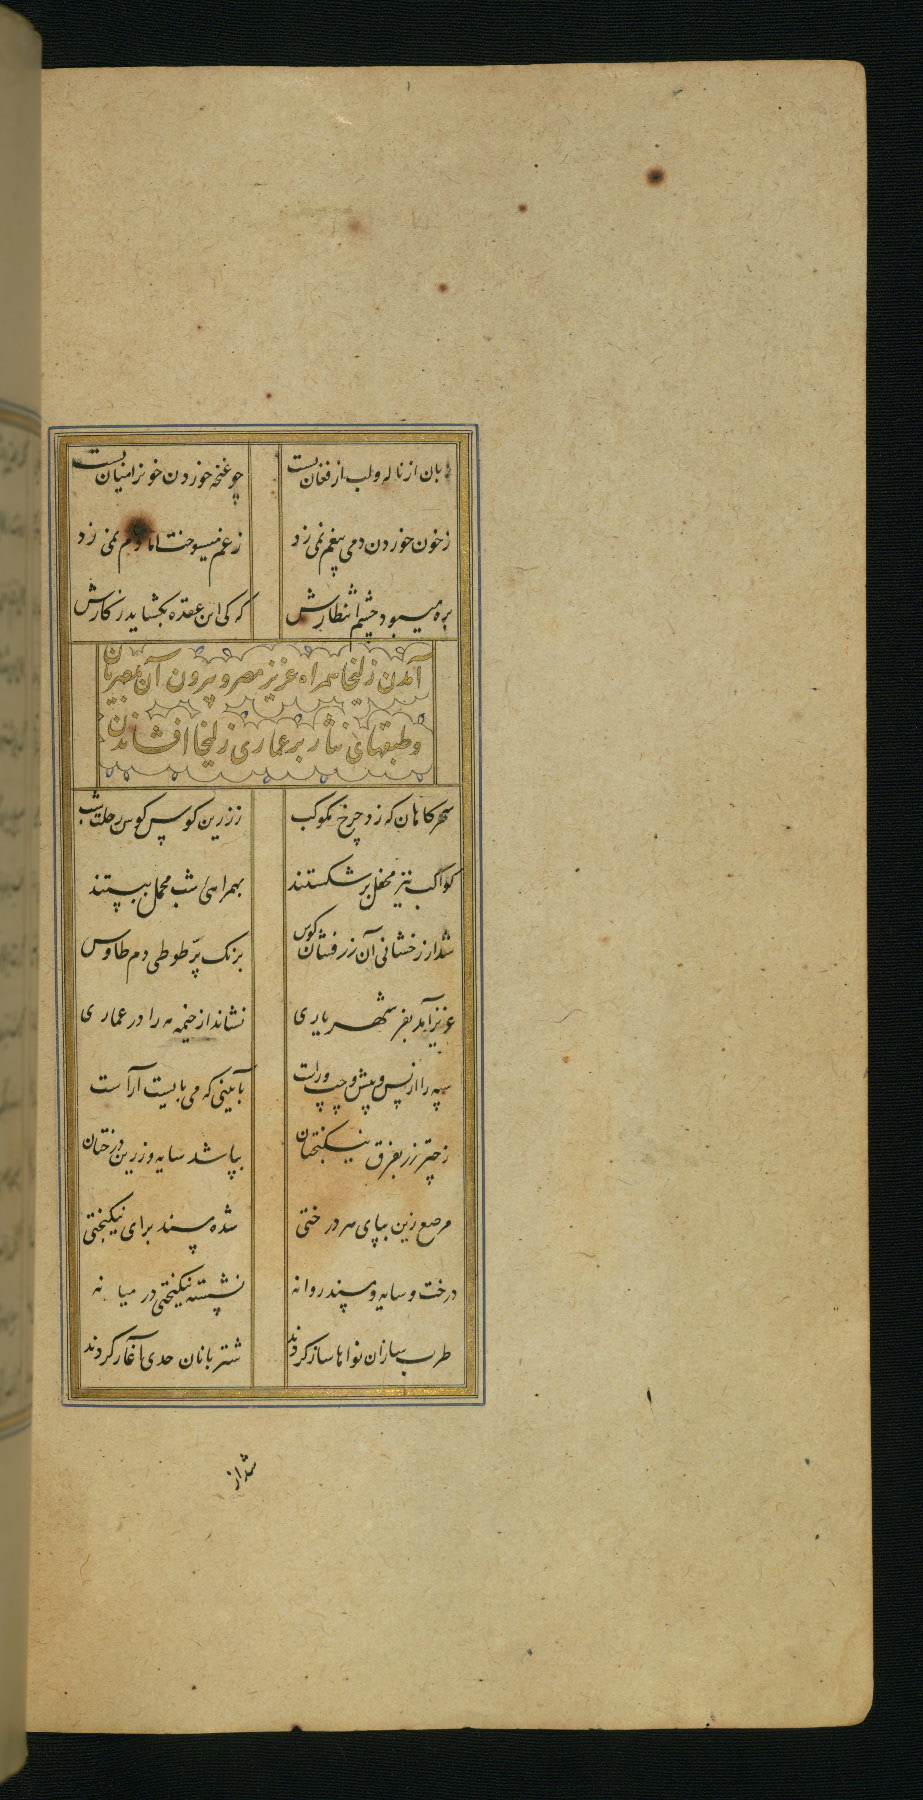 زبان از ناله و لب از فغان بست چو غنچه خوردن خون را میان بست
ز خون خوردن دمی بیغم نمی زد ز غم میسوخت اما دم نمی زد
بره میبود چشم انتظارش که کی این عقده بگشاید ز کارش
آمدن زلیخا همراه عزیز مصر و بیرون آمدن مصریان
و طبقهای نثار بر عماری زلیخا افشاندن
سحرگاهان که زد چرخ مکوکب ز زرین کوس کوس رحلت شب
کواکب نیز محفل بر شکستند بهمراهی شب محمل ببستند
شد از رخشانی آن زرفشان کوس برنگ پر طوطی دم طاوس
عزیز آمد بفر شهریاری نشاند از خیمه مه را در عماری
سپه را از پس و پیش و چپ و راست بآیینی که می بایست آراست
ز چتر زر بفرق نیکبختان بپا شد سایه ور زرین درختان
مرصع زین بپای هر درختی شده مسند برای نیکبختی
درخت و سایه و مسند روانه نشسته نیکبختی در میانه
طرب سازان نواها ساز کردند شتربانان حدی آغاز کردند
شد از